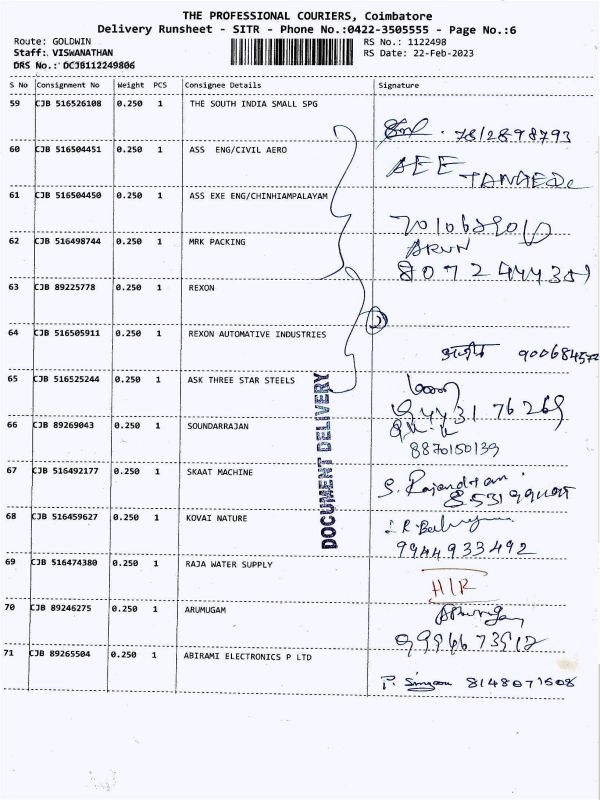 THE PROFESSIONAL COURIERS, Coimbatore
Delivery Runsheet - SITR - Phone No.:0422-3505555 - Page No.:6
Route: GOLDWIN
RS No.: 1122498
Staff: VISWANATHAN
RS Date: 22-Feb-2023
DRS No.: DCJB112249806
S No Consignment No Weight PCS Consignee Details Signature
59 CJB 516526108 0.250 1 THE SOUTH INDIA SMALL SPG
7812898793
60 CJB 516504451 0.250 1 ASS ENG/CIVIL AERO
AEE
61 CJB 516504450 0.250 1 ASS EXE ENG/CHINHIAMPALAYAM
62 CJB 516498744 0.250 1 MRK PACKING
ARUN
63 CJB 89225778 0.250 1 REXON
64 CJB 516505911 0.250 1 REXON AUTOMATIVE INDUSTRIES
65 CJB 516525244 0.250 1 ASK THREE STAR STEELS
66 CJB 89269043 0.250 1 SOUNDARRAJAN
8870150139
67 CJB 516492177 0.250 1 SKAAT MACHINE
68 CJB 516459627 0.250 1 KOVAI NATURE
9944933492
69 CJB 516474380 0.250 1 RAJA WATER SUPPLY
H/R
70 CJB 89246275 0.250 1 ARUMUGAM
71 CJB 89265504 0.250 1 ABIRAMI ELECTRONICS P LTD
8148071508
DOCUMENT DELIVERY